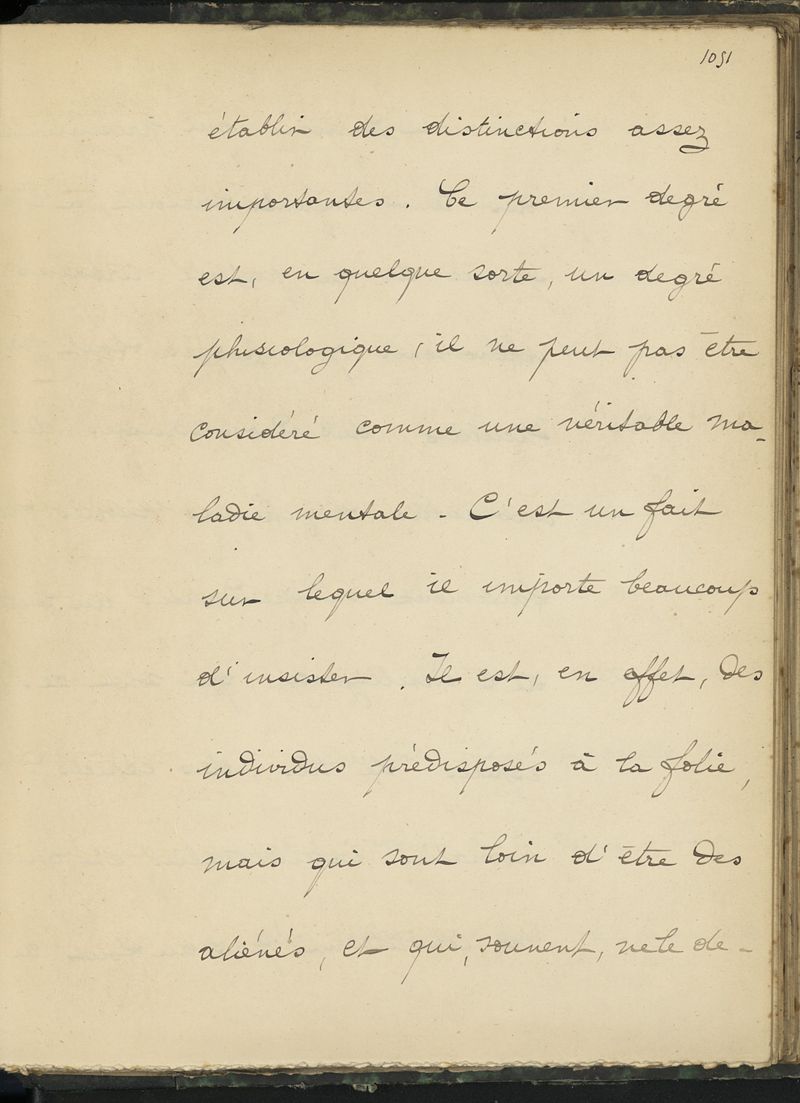 1051
établir des distinctions assez
importantes. Ce premier degré
est, en quelque sorte, un degré
phisiologique, il ne peut pas être
considéré comme une véritable ma-
ladie mentale - C'est un fait
sur lequel il importe beaucoup
d'insister. Il est, en effet, des
individus prédisposés à la folie,
mais qui sont loin d'être des
aliénés, et qui, souvent, ne le de-